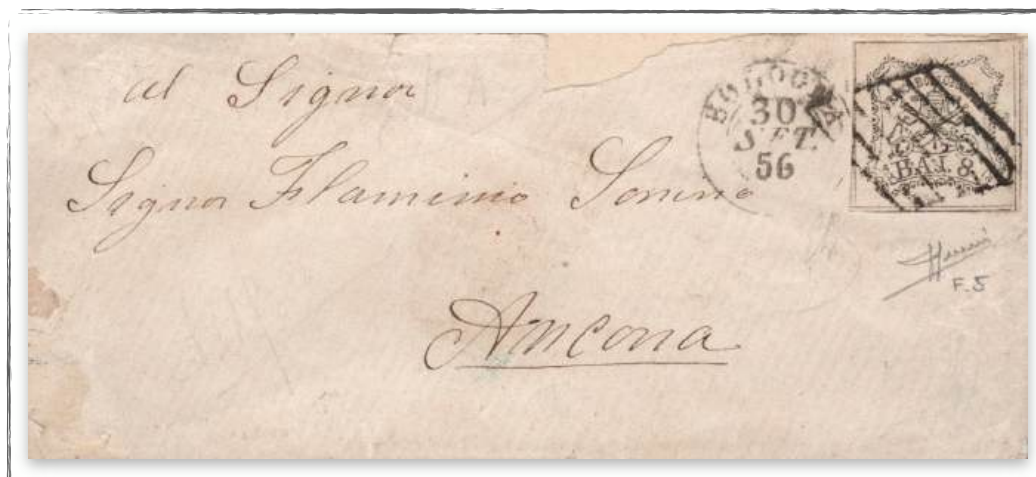 al Signor
Signor Flaminio
Ancona
BOLOGNA
30
SET.
56
BAJ. 8
F. S